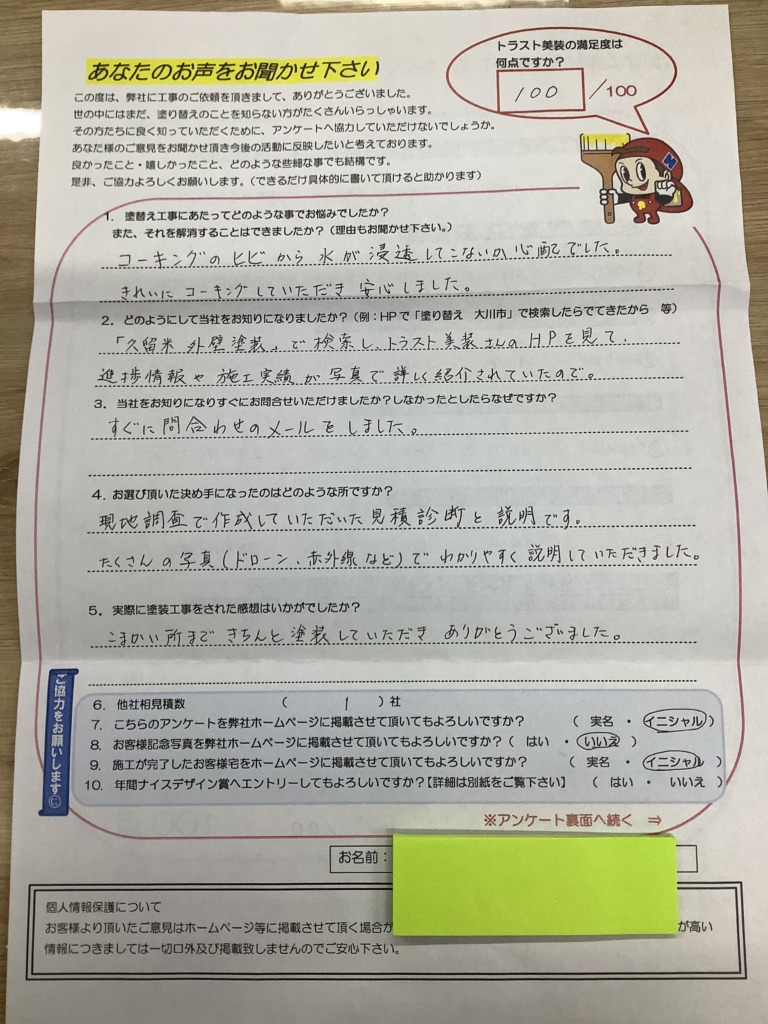 あなたのお声をお聞かせ下さい
トラスト美装の満足度は
何点ですか?
100 /100
この度は、弊社に工事のご依頼を頂きまして、ありがとうございました。
世の中にはまだ、塗り替えのことを知らない方がたくさんいらっしゃいます。
その方たちに良く知っていただくために、アンケートへ協力していただけないでしょうか。
あなた様のご意見をお聞かせ頂き今後の活動に反映したいと考えております。
良かったこと・嬉しかったこと、どのような些細な事でも結構です。
是非、ご協力よろしくお願いします。(できるだけ具体的に書いて頂けると助かります)
N
1. 塗替え工事にあたってどのような事でお悩みでしたか?
また、それを解消することはできましたか?(理由もお聞かせ下さい。)
コーキングのヒビから水が浸透してこないか心配でした。
きれいにコーキングしていただき安心しました。
2. どのようにして当社をお知りになりましたか?(例:HPで「塗り替え 大川市」で検索したらでてきたから 等)
「久留米 外壁塗装」で検索し、トラスト美装さんのHPを見て、
進捗情報や施工実績が写真で詳しく紹介されていたので。
3. 当社をお知りになりすぐにお問合せいただけましたか?しなかったとしたらなぜですか?
すぐに問合わせのメールをしました。
4. お選び頂いた決め手になったのはどのような所ですか?
現地調査で作成していただいた見積診断と説明です。
たくさんの写真(ドローン、赤外線など)でわかりやすく説明していただきました。
5. 実際に塗装工事をされた感想はいかがでしたか?
こまかい所まできちんと塗装していただきありがとうございました。
ご協力をお願いします
6. 他社相見積数 ( 1 )社
7. こちらのアンケートを弊社ホームページに掲載させて頂いてもよろしいですか? ( 実名 ・ イニシャル )
8. お客様記念写真を弊社ホームページに掲載させて頂いてもよろしいですか?( はい ・ いいえ )
9. 施工が完了したお客様宅をホームページに掲載させて頂いてもよろしいですか? ( 実名 ・ イニシャル )
10. 年間ナイスデザイン賞へエントリーしてもよろしいですか?【詳細は別紙をご覧下さい】 ( はい ・ いいえ )
※アンケート裏面へ続く ⇒
お名前:
個人情報保護について
お客様より頂いたご意見はホームページ等に掲載させて頂く場合が
が高い
情報につきましては一切口外及び掲載致しませんのでご安心下さい。